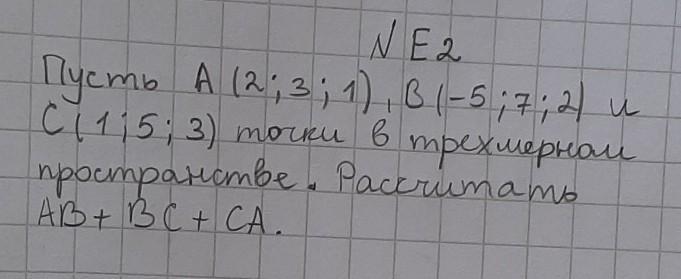 №E2
Пусть A (2; 3; 1), B (-5; 7; 2) и
C (1; 5; 3) точки в трехмерном
пространстве. Рассчитать
AB + BC + CA.